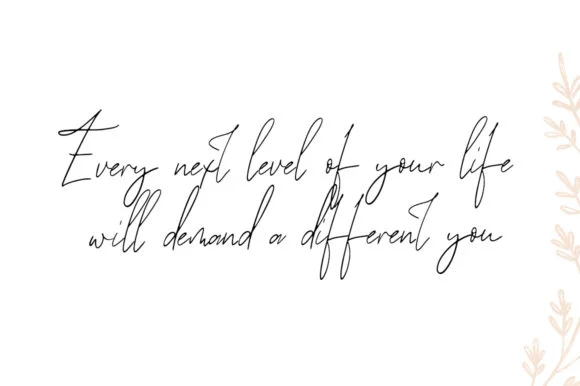 Every next level of your life
will demand a different you